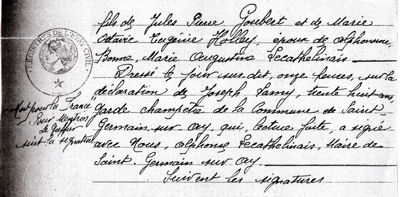 fils de Jules Pierre Goubert et de Marie
Octavie Eugénie Holley, époux de Alphonsine,
Bonne, Marie Augustine Lecathelinais
Dressé le jour sus dit, onze heures, sur la
déclaration de Joseph Lamy, trente huit ans,
garde champêtre de la Commune de Saint
Germain sur Ay, qui, lecture faite, a signé
avec Nous, Alphonse Lecathelinais, Maire de
Saint Germain sur Ay.
Suivent les signatures
REGISTRES DE L'ETAT CIVIL
Mort pour la France
Pour Mention
le Greffier
suit la signature